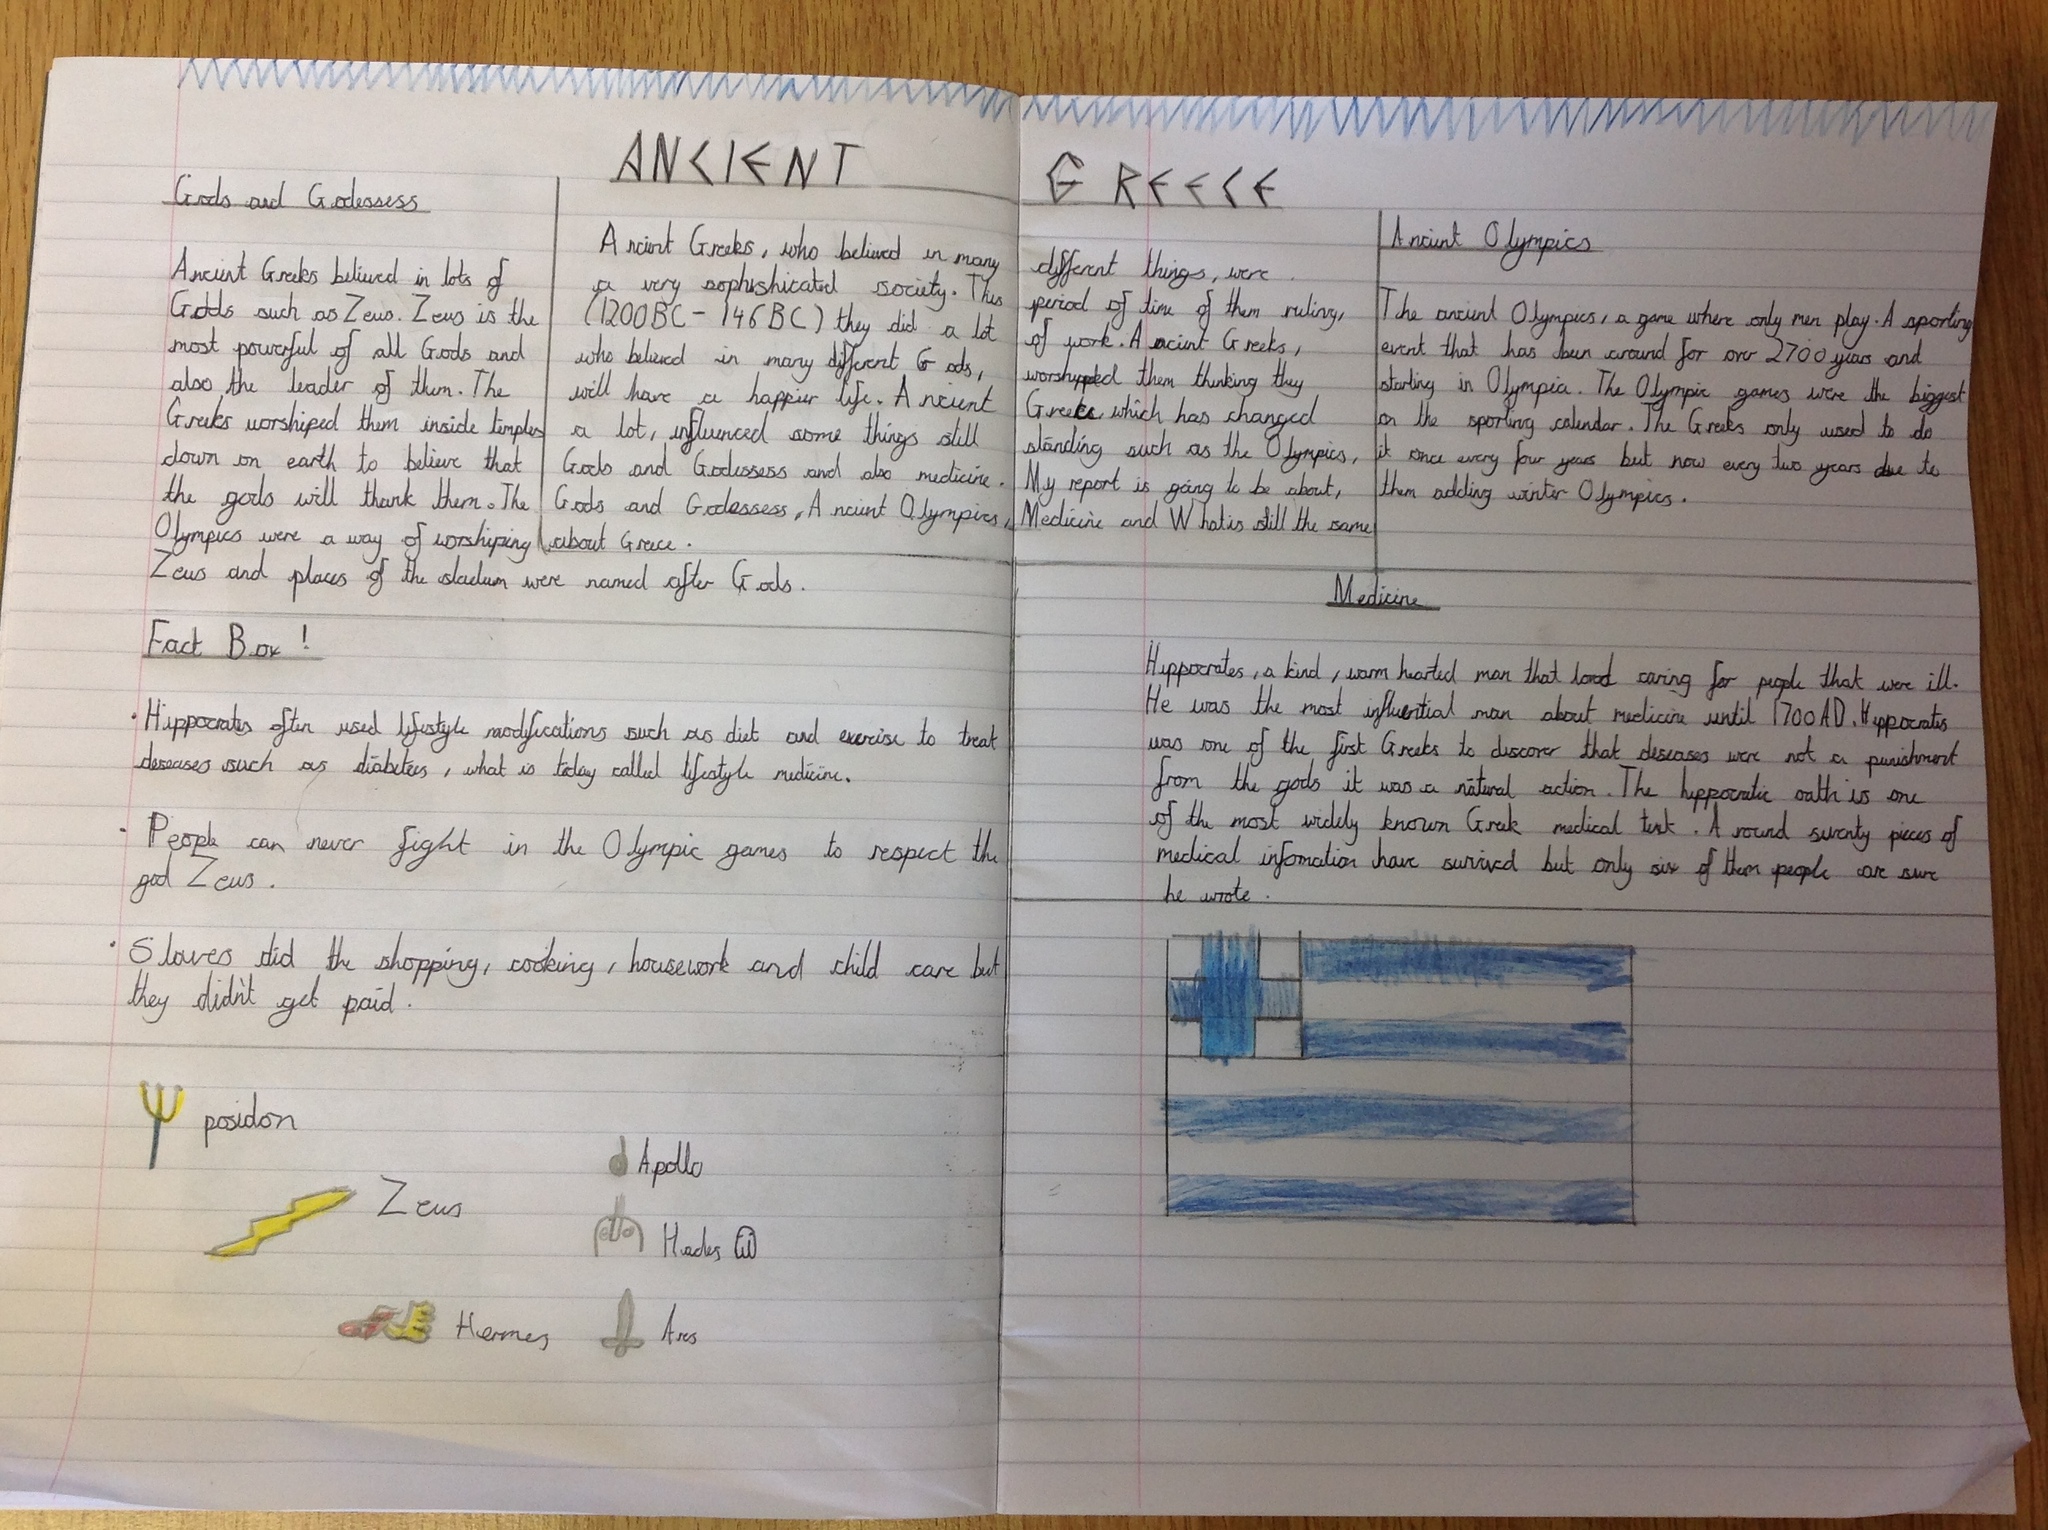 ANCIENT GREECE
Gods and Godessess
Ancient Greeks believed in lots of
Godds such as Zeus. Zeus is the
most powerful of all Gods and
also the leader of them. The
Greeks worshiped them inside temples
down on earth to believe that
the gods will thank them. The
Olympics were a way of worshiping
Zeus and places of the stadium were named after Gods.
Ancient Greeks, who believed in many different things, were
a very sophishicated society. This period of time of them ruling,
(1200BC - 146BC) they did a lot of work. Ancient Greeks,
who believed in many different Gods, worshipped them thinking they
will have a happier life. Ancient Greece, which has changed
a lot, influenced some things still standing such as the Olympics,
Gods and Godessess and also medicine. My report is going to be about,
Gods and Godessess, Ancient Olympics, Medicine and What is still the same
about Greece.
Ancient Olympics
The ancient Olympics, a game where only men play. A sporting
event that has been around for over 2700 years and
starting in Olympia. The Olympic games were the biggest
on the sporting calendar. The Greeks only used to do
it once every four years but now every two years due to
them adding winter Olympics.
Fact Box!
• Hippocrates often used lifestyle modifications such as diet and exercise to treat
deseases such as diabetees, what is today called lifestyle medicine.
• People can never fight in the Olympic games to respect the
god Zeus.
• Slaves did the shopping, cooking, housework and child care but
they didn't get paid.
Medicine
Hippocrates, a kind, warm hearted man that loved caring for people that were ill.
He was the most influential man about medicine until 1700AD. Hippocrates
was one of the first Greeks to discover that deseases were not a punishment
from the gods it was a natural action. The hippocratic oath is one
of the most widely known Greek medical text. Around seventy pieces of
medical infomation have survived but only six of them people are sure
he wrote.
posidon
Apollo
Zeus
Hades
Hermes
Ares